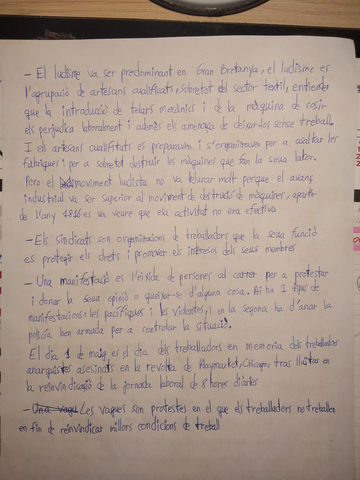 - El ludisme va ser predominant en Gran Bretanya, el ludisme es
l'agrupació de artesans qualificats, sobretot del sector textil, entienen
que la introducció de telars mecànics i de la màquina de cosir
els perjudica laboralment i ademés els amenaça de deixar-los sense treball.
I els artesans qualifitats es preparaven i s'organitzaven per a asaltar les
fàbriques i per a sobretot destruir les màquines que fan la seua labor.
Pero el moviment ludista no va durar molt perque el avans
industrial va ser superior al moviment de destrucció de màquines, apartir
de l'any 1816 es va veure que esa activitat no era efectiva
- Els sindicats son organitzacions de treballadors que la seua funció
es protegir els drets i promover els interesos dels seus membres
- Una manifestació es l'eixida de persones al carrer per a protestar
i donar la seua opinió o queixar-se d'alguna cosa. Ai ha 2 tipus de
manifestacions: les pacifiques i les violentes, i en la segona ha d'anar la
policia ben armada per a controlar la situació.
El dia 1 de maig es el dia dels treballadors en memoria dels treballadors
anarquistes asesinats en la revolta de Haymarket, Chicago, tras lluitar en
la reinvindicació de la jornada laboral de 8 hores diàries
- Una vaga Les vagues son protestes en el que els treballadors no treballen
en fin de reinvindicar millors condicions de treball